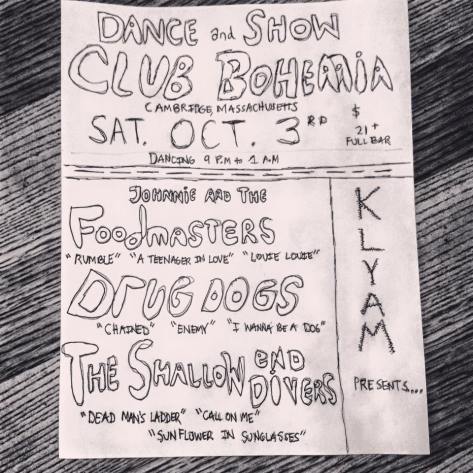 DANCE and SHOW
CLUB BOHEMIA
CAMBRIDGE, MASSACHUSETTS
SAT. OCT. 3RD
$
21+
FULL BAR
DANCING 9 P.M to 1 A.M
JOHNNIE AND THE
FOODMASTERS
"RUMBLE" "A TEENAGER IN LOVE" "LOUIE LOUIE"
DRUG DOGS
"CHAINED" "ENEMY" "I WANNA BE A DOG"
THE SHALLOW END
DIVERS
"DEAD MAN'S LADDER" "CALL ON ME"
"SUNFLOWER IN SUNGLASSES"
KLYAM
PRESENTS...